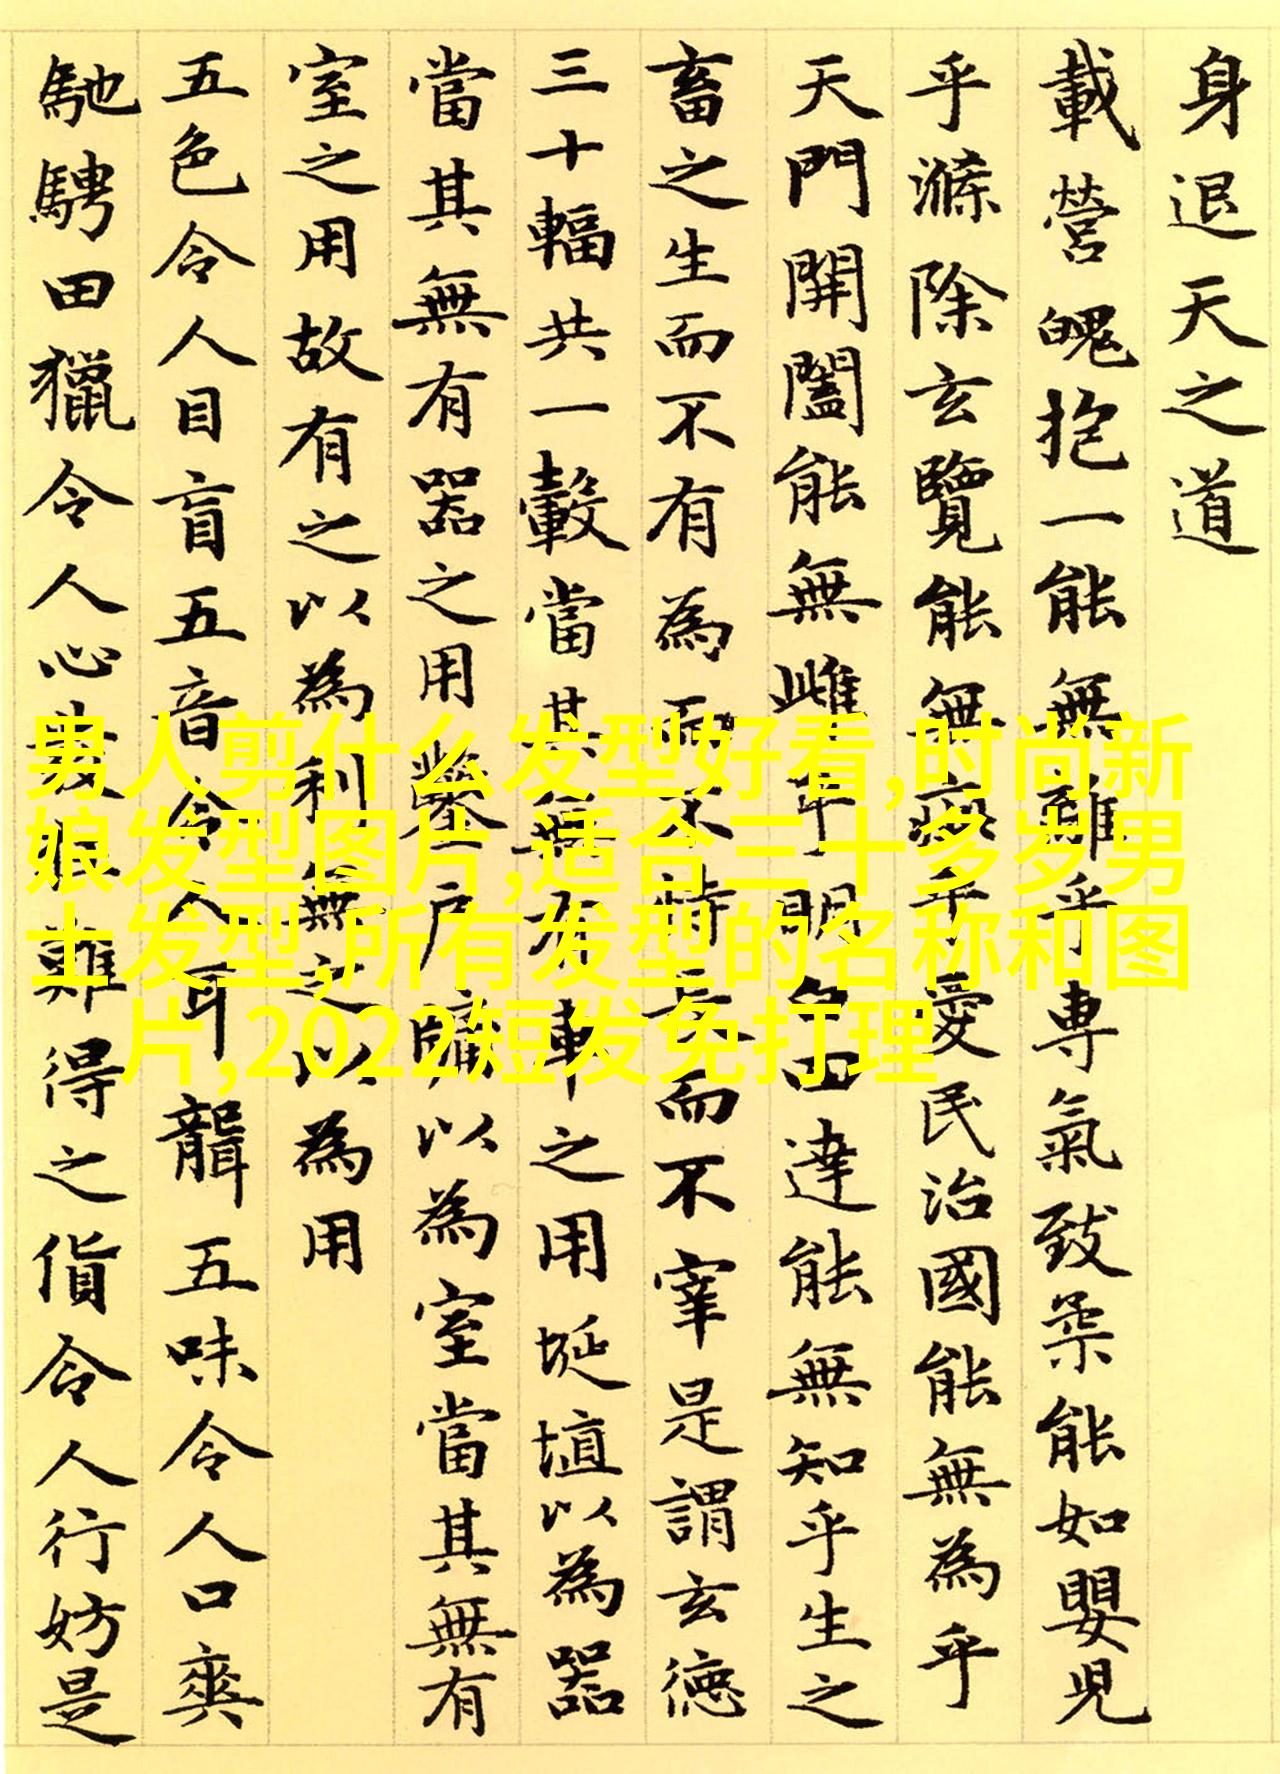 身退天之道
載營魄抱一能無離乎專氣致柔能如嬰兒
乎滌除玄覽能無疵乎愛民治國能無為乎
天門開闔能無雌乎明白四達能無知乎生之
畜之生而不有為而不恃長而不宰是謂玄德
三十輻共一轂當其無有車之用埏埴以為器
當其無有器之用鑿户牖以為室當其無有
室之用故有之以為利無之以為用
五色令人目盲五音令人耳聾五味令人口爽
馳騁田獵令人心發狂難得之貨令人行妨是
男人剪什么发型好看,时尚新
娘发型图片,适合三十多岁男
士发型,所有发型的名称和图
片,2022短发免打理